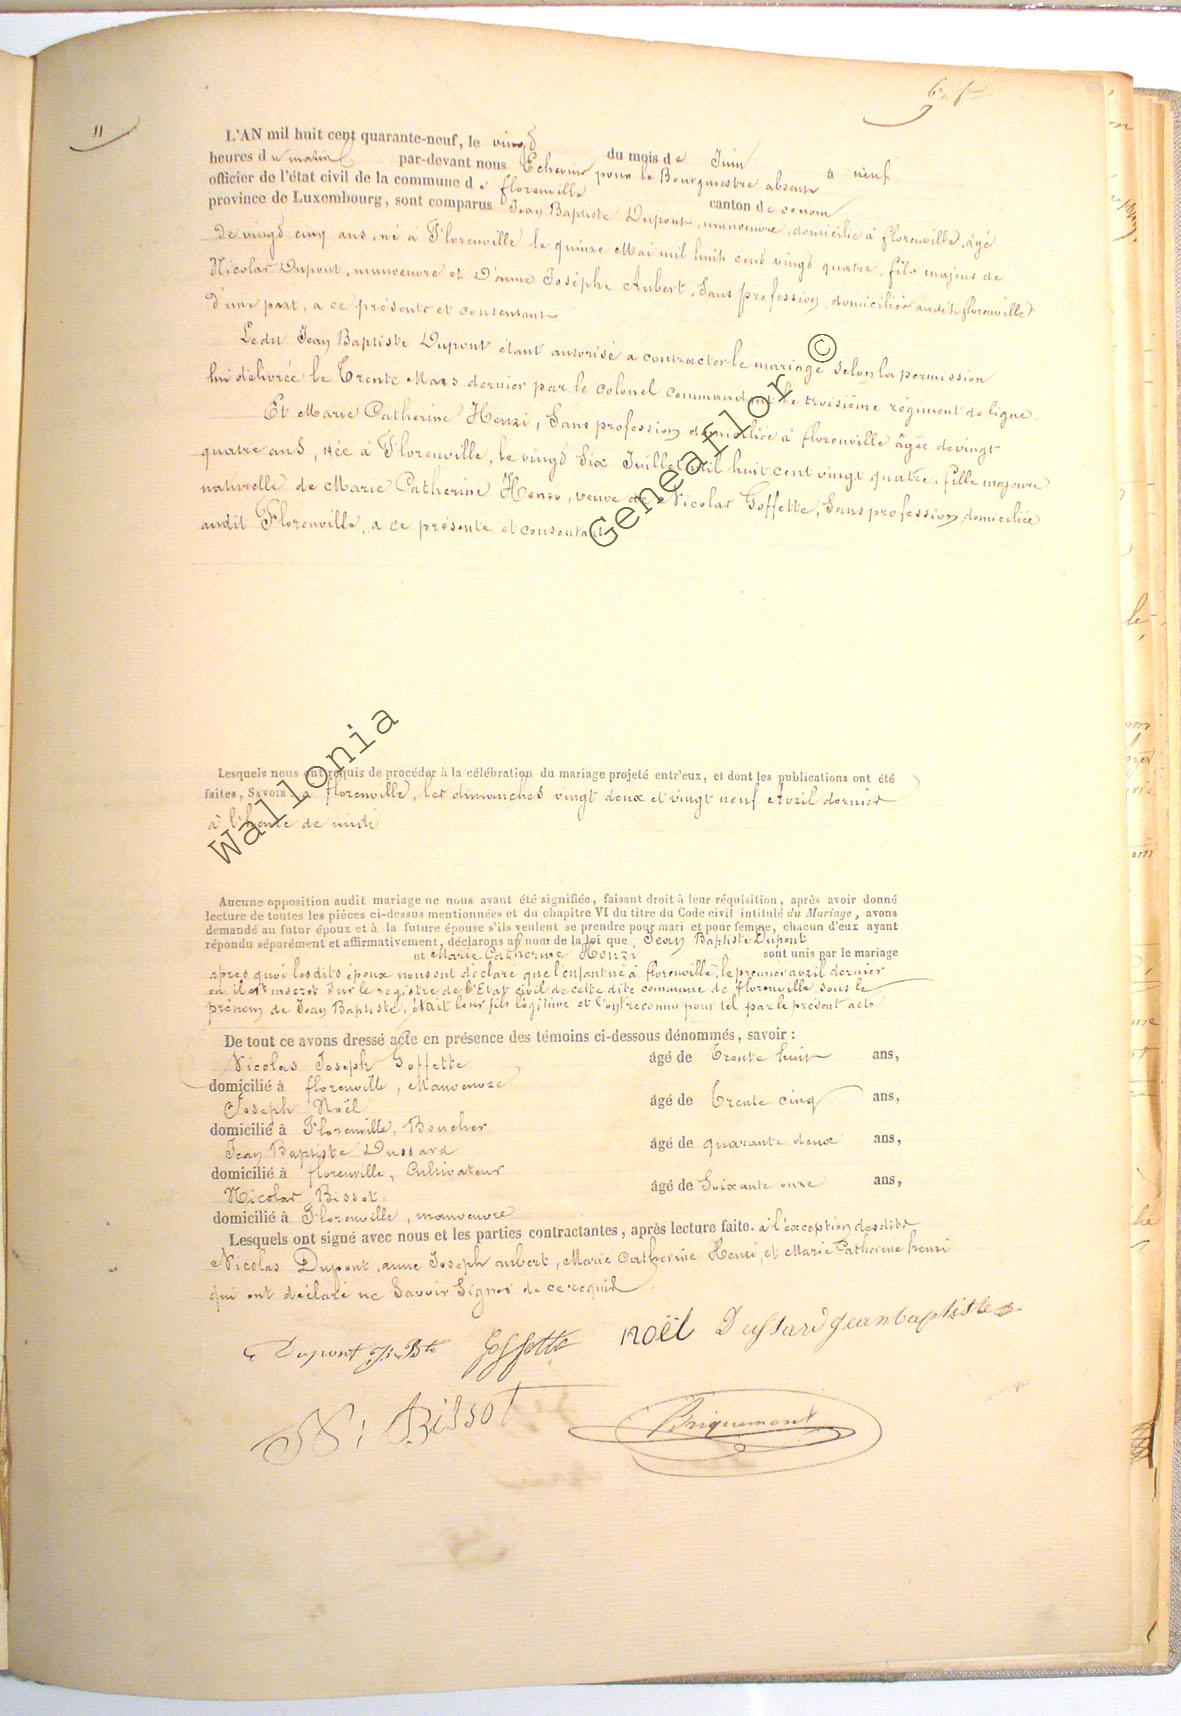 11
L'AN mil huit cent quarante-neuf, le vingt du mois de Juin à neuf
heures du matin par-devant nous Echevin pour le Bourgmestre absent
officier de l'état civil de la commune de florenville canton de ce nom
province de Luxembourg, sont comparus Jean Baptiste Dupont, manoeuvre, domicilié à florenville, âgé
de vingt cinq ans, né à Florenville le quinze Mai mil huit cent vingt quatre, fils majeur de
Nicolas Dupont, manoeuvre et D'anne Josephe Aubert, Sans profession, domiciliés audit florenville
d'une part, a ce présents et consentant
Ledit Jean Baptiste Dupont étant autorisé a contracter le mariage selon la permission
lui délivrée le Trente Mars dernier par le colonel commandant le troisième régiment de ligne
Et Marie Catherine Henri, Sans profession domiciliée à florenville âgée de vingt
quatre ans, née à Florenville, le vingt Six Juillet mil huit cent vingt quatre, fille majeure
naturelle de Marie Catherine Henri, veuve de Nicolas Goffette, Sans profession, domiciliée
audit Florenville, a ce présente et consentant
Lesquels nous ont requis de procéder à la célébration du mariage projeté entr'eux, et dont les publications ont été
faites, Savoir à florenville, les dimanches vingt deux et vingt neuf Avril dernier
à l'heure de midi
Aucune opposition audit mariage ne nous ayant été signifiée, faisant droit à leur réquisition, après avoir donné
lecture de toutes les pièces ci-dessus mentionnées et du chapitre VI du titre du Code civil intitulé du Mariage, avons
demandé au futur époux et à la future épouse s'ils veulent se prendre pour mari et pour femme, chacun d'eux ayant
répondu séparément et affirmativement, déclarons au nom de la loi que Jean Baptiste Dupont
et Marie Catherine Henri sont unis par le mariage
après quoi lesdits époux nous ont déclaré que l'enfant né à florenville, le premier avril dernier
et inscrit sur le registre de l'Etat civil de cette dite commune de Florenville sous le
prénom de Jean Baptiste, était leur fils légitime et l'ont reconnu pour tel par le présent acte
De tout ce avons dressé acte en présence des témoins ci-dessous dénommés, savoir :
Nicolas Joseph Goffette âgé de Trente huit ans,
domicilié à florenville, Manoeuvre
Joseph Noël âgé de Trente cinq ans,
domicilié à Florenville, Boucher
Jean Baptiste Dussard âgé de quarante deux ans,
domicilié à florenville, Cultivateur
Nicolas Bissot âgé de Soixante onze ans,
domicilié à Florenville, manoeuvre
Lesquels ont signé avec nous et les parties contractantes, après lecture faite. à l'exception desdits
Nicolas Dupont, anne Joseph aubert, Marie Catherine Henri, et Marie Catherine henri
qui ont déclaré ne Savoir Signer de ce requis
Dupont J. Bte Goffette Noël Dussard Jean baptiste
Ni Bissot Briquemont
Wallonia Geneaflor ©